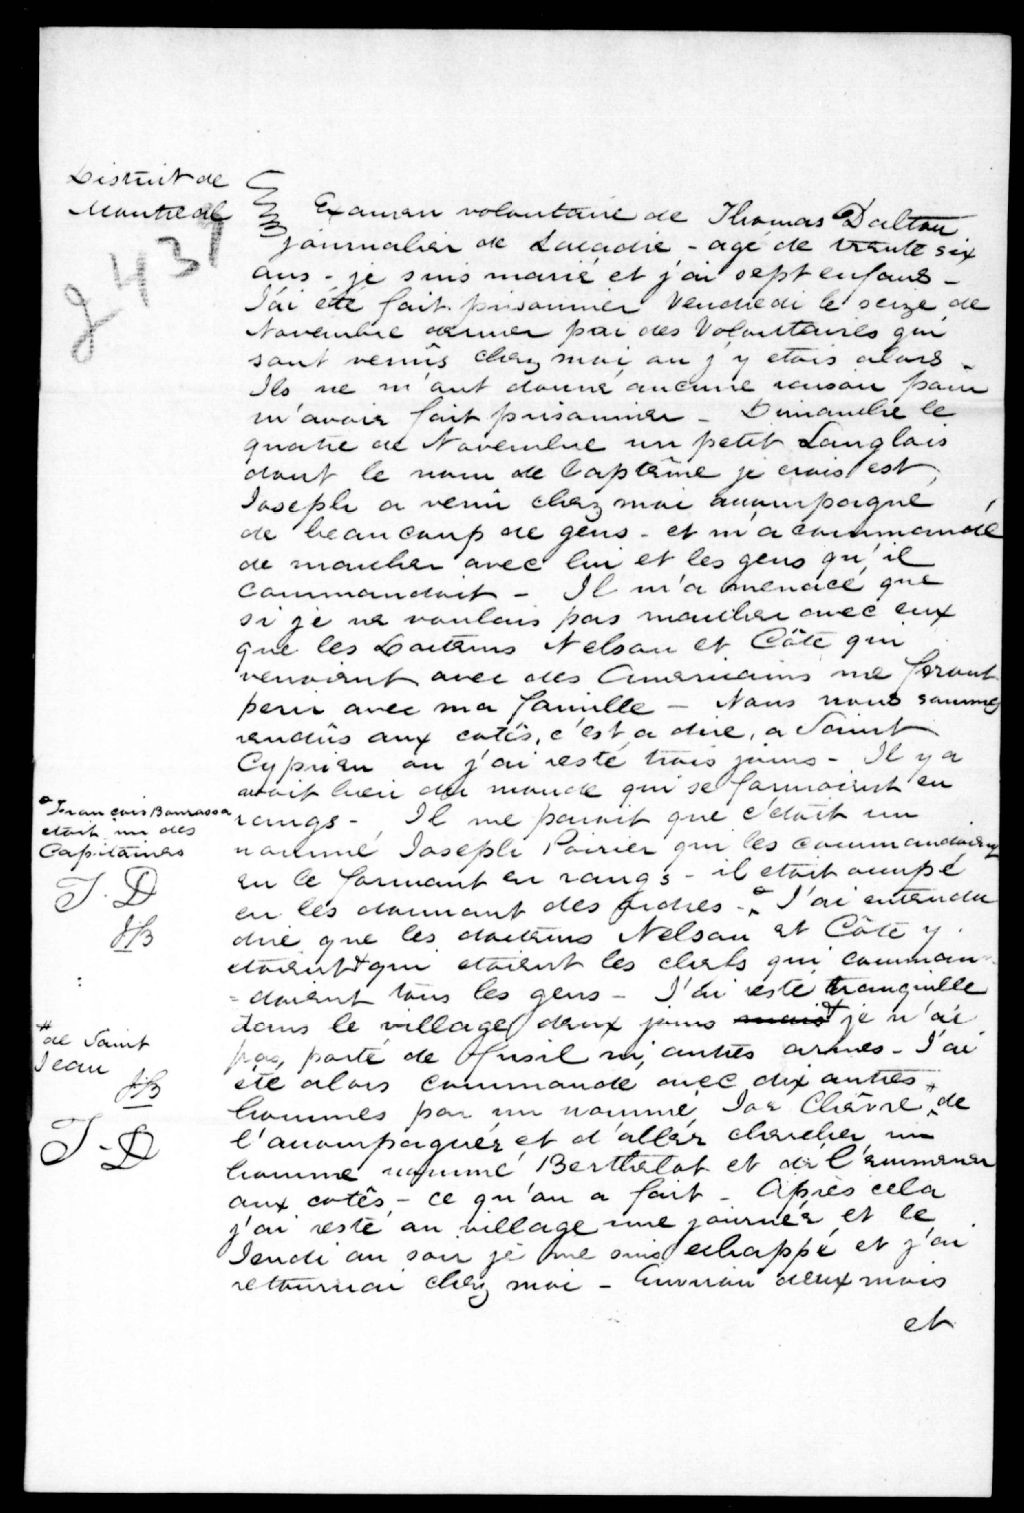 District de
Montreal
g 437
Examen volontaire de Thomas Dalton
journalier de Lacadie - agé de trente six
ans - je suis marié et j'ai sept enfans -
J'ai été fait prisonnier Vendredi le seize de
Novembre dernier par des Volontaires qui
sont venûs chez moi, ou j'y etois alors -
Ils ne m'ont donné aucune raison pour
m'avoir fait prisonnier - Dimanche le
quatre de Novembre un petit Langlois
dont le nom de Baptême je crois est
Joseph a venu chez moi accompagné
de beaucoup de gens - et m'a commandé
de marcher avec lui et les gens qu'il
commandoit - Il m'a menacé que
si je ne voulais pas marcher avec eux
que les Docteurs Nelson et Côte qui
venoient avec des Americains me feront
perir avec ma famille - Nous nous sommes
rendûs aux cotês, c'est a dire, a Saint
Cyprien ou j'ai resté trois jours - Il y a
avoit bien du monde qui se formoient en
rangs - Il me paroit que c'étoit un
nommé Joseph Poirier qui les commandoient
en le formant en rangs - il etoit occupé
en les donnant des ordres - J'ai entendu
dire que les docteurs Nelson et Côte y
etoient & qui etoient les chefs qui comman-
-doient tous les gens - J'ai resté tranquille
dans le village deux jours mais & je n'ai
pas porté de fusil ni autres armes - J'ai
été alors commandé avec dix autres
hommes par un nommé Jos Chêvre # de
l'accompagner et d'aller chercher un
homme nommé Berthelot et de l'emmener
aux cotês - ce qu'on a fait - Après cela
j'ai resté au village une journée et le
Jeudi au soir je me suis echappé et j'ai
retournai chez moi - Environ deux mois
et
François Bourassa
etoit un des
Capitaines
T. D
# de Saint
Jean
T - D